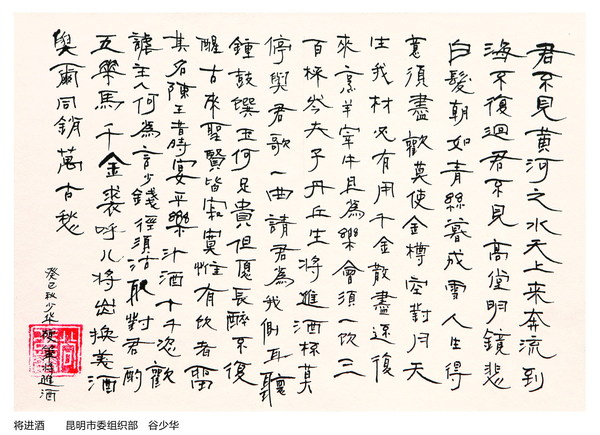 君不見黄河之水天上来奔流到
海不復迴君不見高堂明鏡悲
白髮朝如青絲暮成雪人生得
意須盡歡莫使金樽空對月天
生我材必有用千金散盡還復
來烹羊宰牛且為樂會須一飲三
百杯岑夫子丹丘生將進酒杯莫
停與君歌一曲請君為我側耳聽
鐘鼓饌玉何足貴但願長醉不復
醒古來聖賢皆寂寞惟有飲者留
其名陳王昔時宴平樂斗酒十千恣歡
謔主人何為言少錢徑須沽取對君酌
五花馬千金裘呼儿將出換美酒
與爾同銷萬古愁
癸巳秋少华硬筆將進酒
将进酒 昆明市委组织部 谷少华